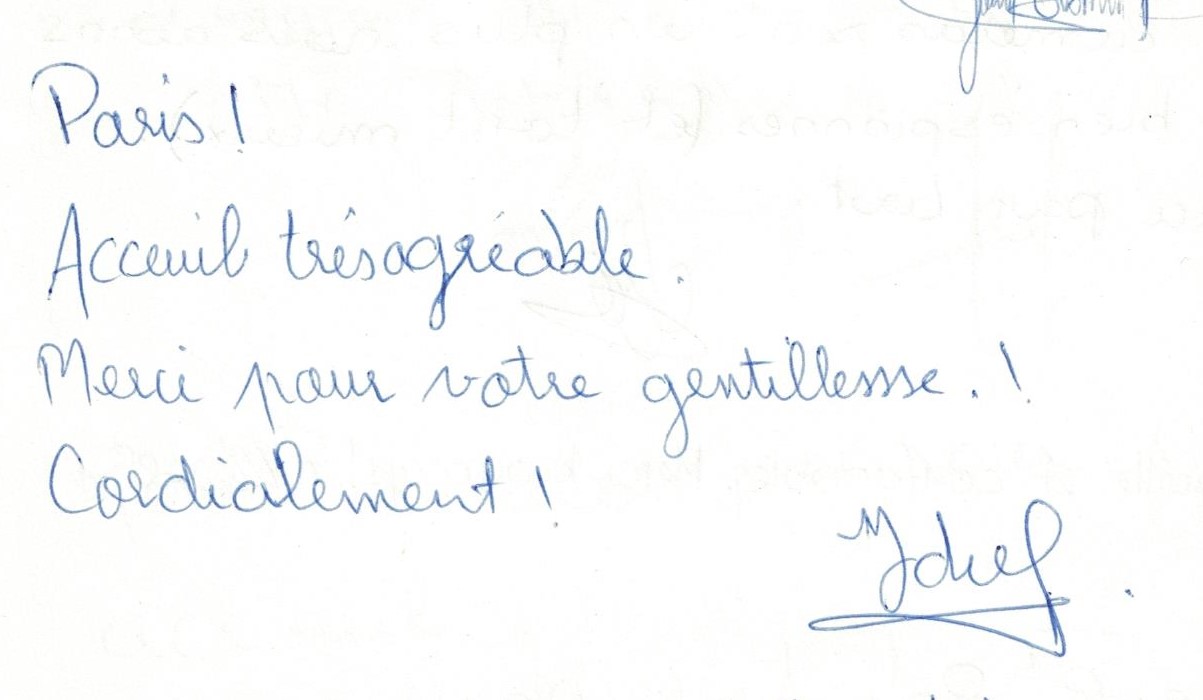 Paris !
Acceuil trés agréable.
Merci pour votre gentillesse. !
Cordialement !